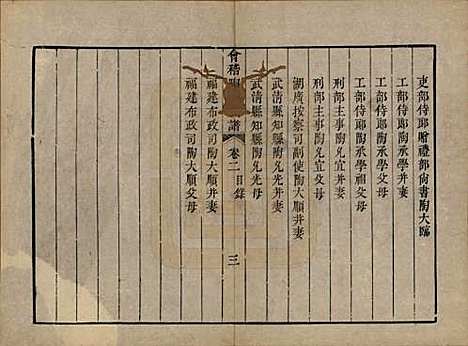 吏部侍郎贈禮部尚書陶大臨
工部侍郎陶承學并妻
工部侍郎陶承學父母
工部侍郎陶承學祖父母
刑部主事陶允宜并妻
刑部主事陶允宜父母
湖廣按察司副使陶大順并妻
武清縣知縣陶允光并妻
武清縣知縣陶允光母
會稽陶 譜 卷二目錄 三
福建布政司陶大順并妻
福建布政司陶大順父母